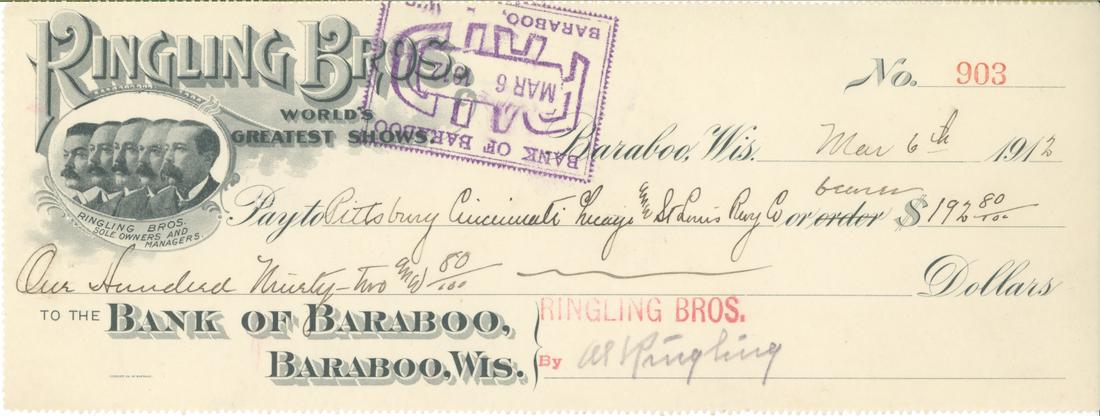 RINGLING BROS.
WORLD'S
GREATEST SHOWS.
RINGLING BROS.
SOLE OWNERS AND
MANAGERS.
BANK OF BARABOO
MAR 6
BARABOO,
No. 903
Baraboo, Wis. Mar 6th 1912
Pay to Pittsburg Cincinnati Chicago and St Louis Rwy Co or order bearer $192 80/100
One Hundred Ninety-two and 80/100 Dollars
TO THE BANK OF BARABOO,
BARABOO, WIS.
RINGLING BROS.
By Al Ringling